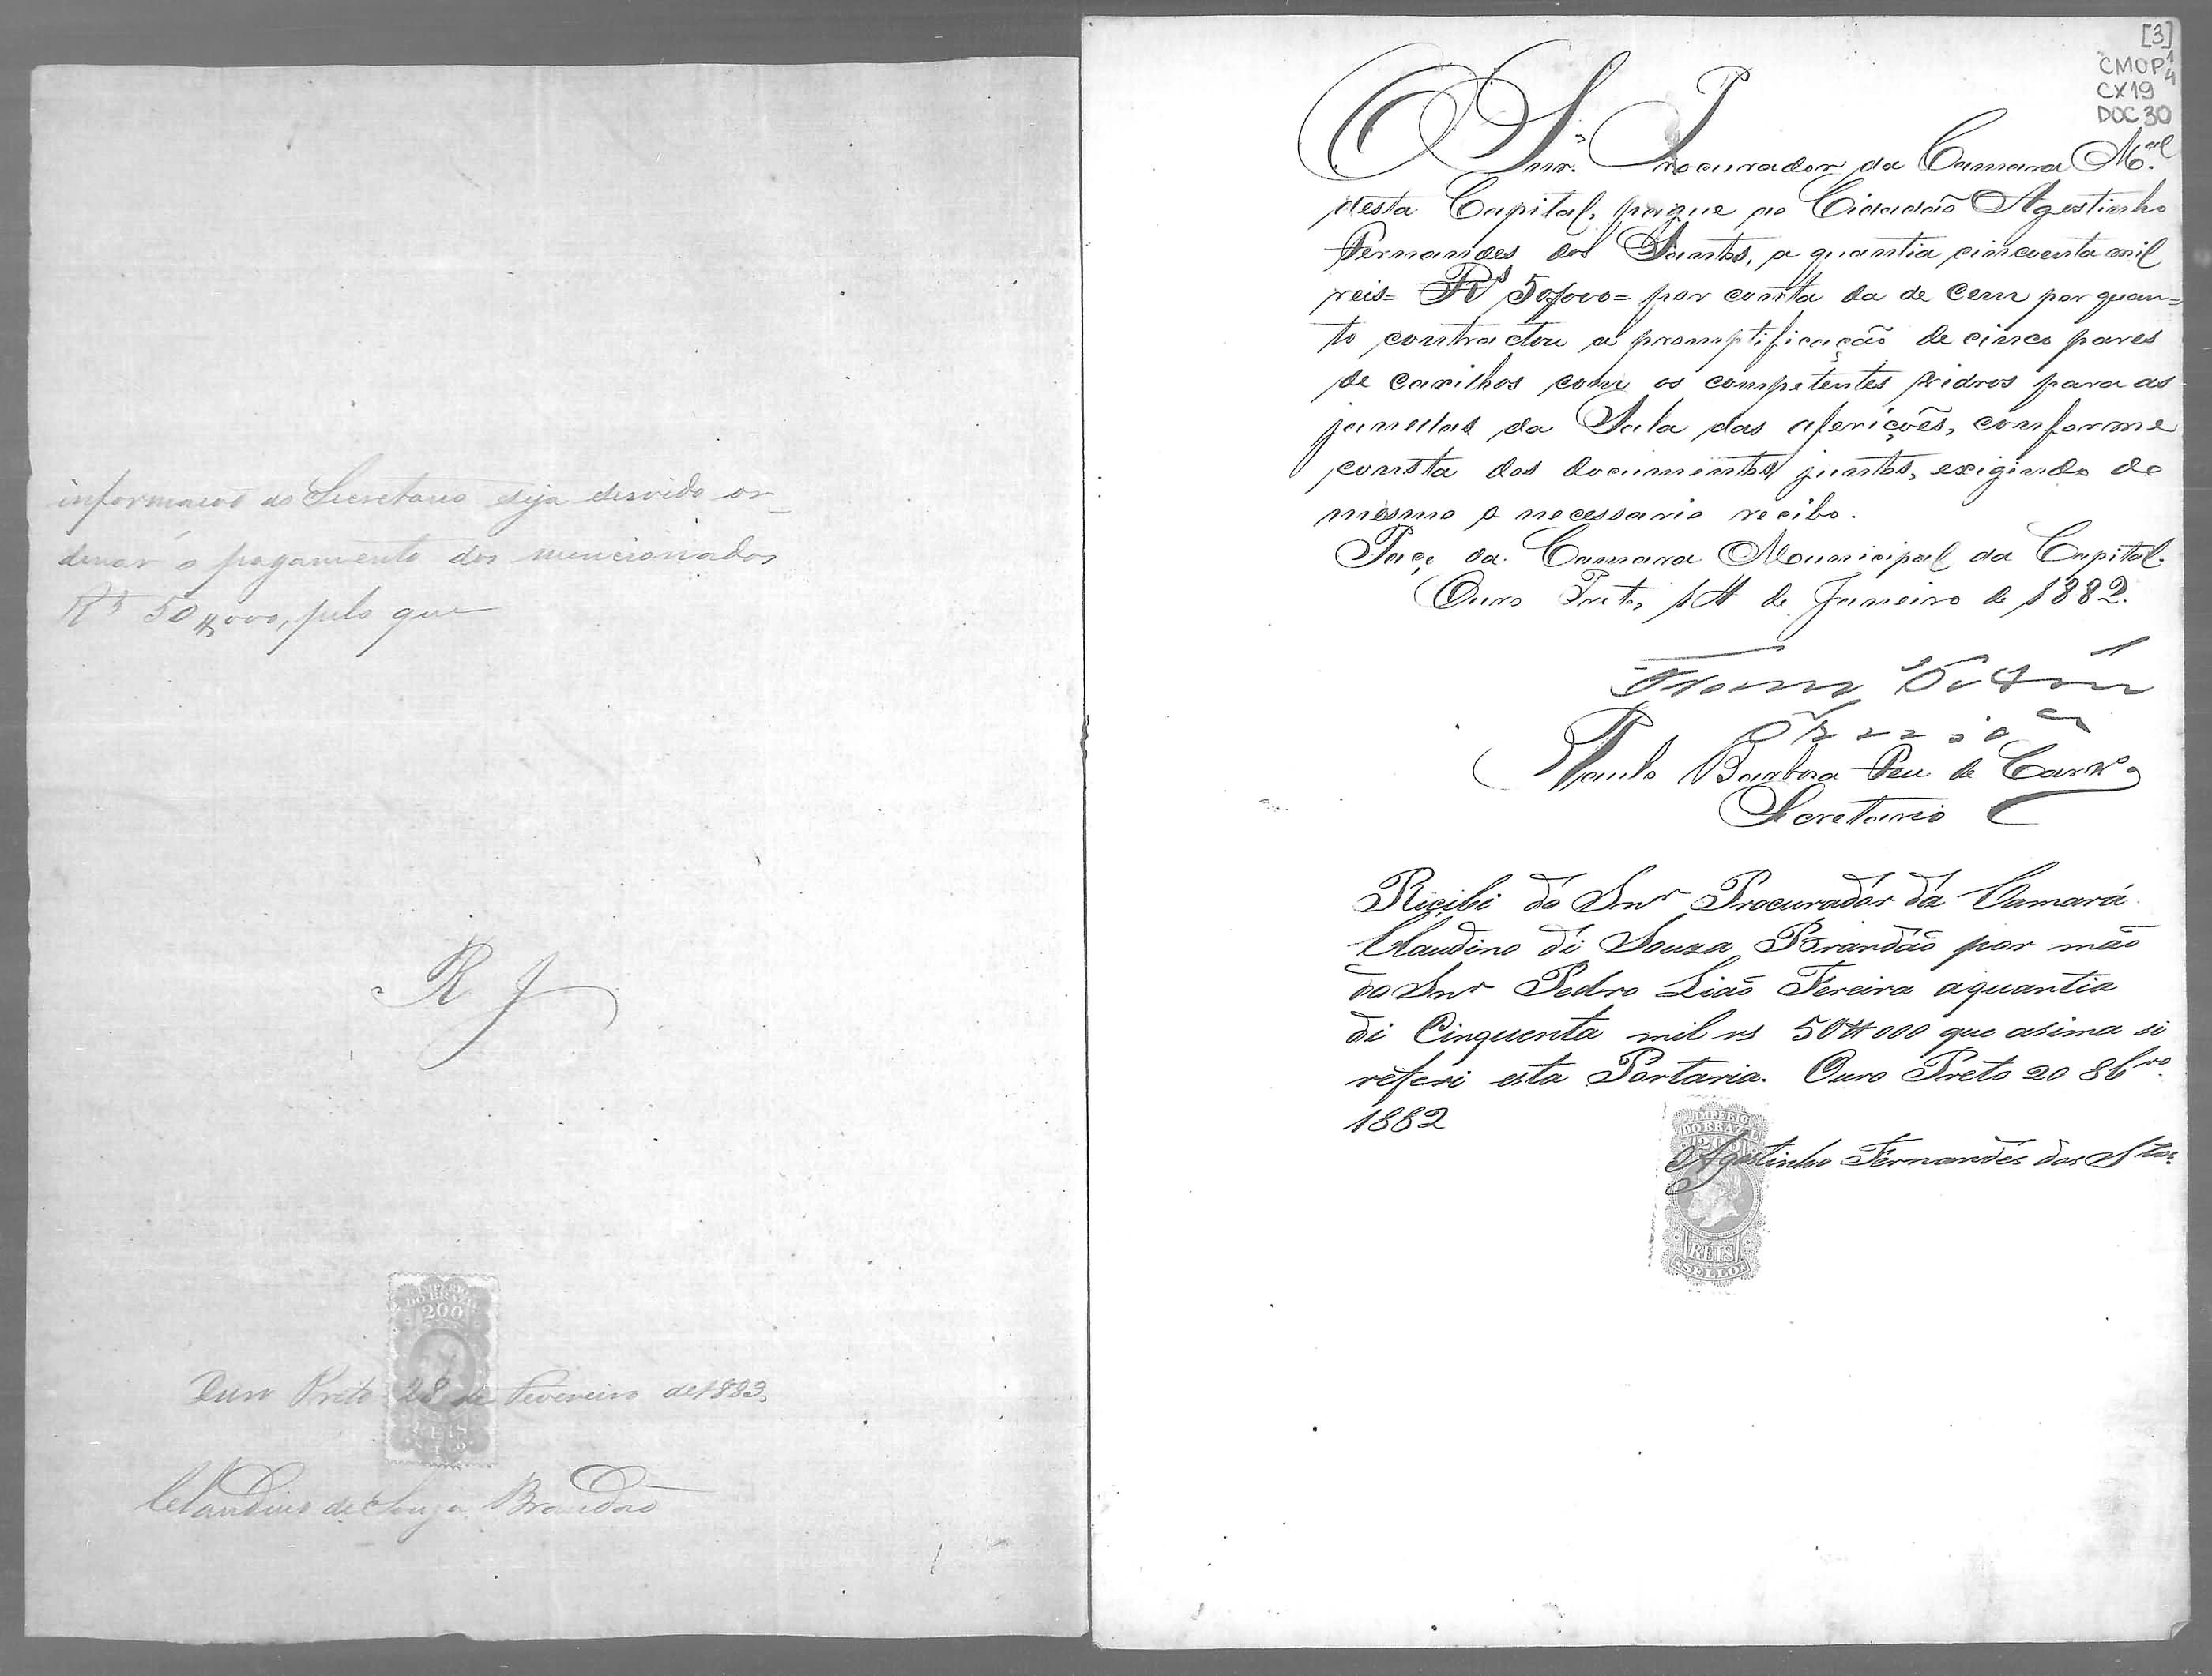 informação do Secretario seja servido or-
denar o pagamento dos mencionados
Rs 50$000, pelo que
R J
IMPERIO
DO BRAZIL
200
REIS
Ouro Preto 28 de Fevereiro de 1883,
Claudino de Souza Brandão
[3]
CMOP 1/4
CX19
DOC 30
O Snr. Procurador da Camara M.al
desta Capital, pague ao Cidadão Agostinho
Fernandes dos Santos, a quantia cincoenta mil
reis= Rs 50$000= por conta da de Cem por quan=
to contractou a promptificação de cinco pares
de caxilhos com os competentes vidros para as
janellas da Sala das aferições, conforme
consta dos documentos juntos, exigindo do
mesmo o necessario recibo.
Paço da Camara Municipal da Capital.
Ouro Preto, 14 de Janeiro de 1882.
Paulo Barbosa Peu de Carvo
Secretario
Ricibi do Snr Procurador da Camará
Claudino di Souza Brandão por mão
do Snr Pedro Lião Fereira aquantia
di Cinquenta mil rs 50$000 que asima si
referi esta Portaria. Ouro Preto 20 8bro
1882
IMPERIO
DO BRAZIL
200
Agostinho Fernandes dos Stos
REIS
SELLO